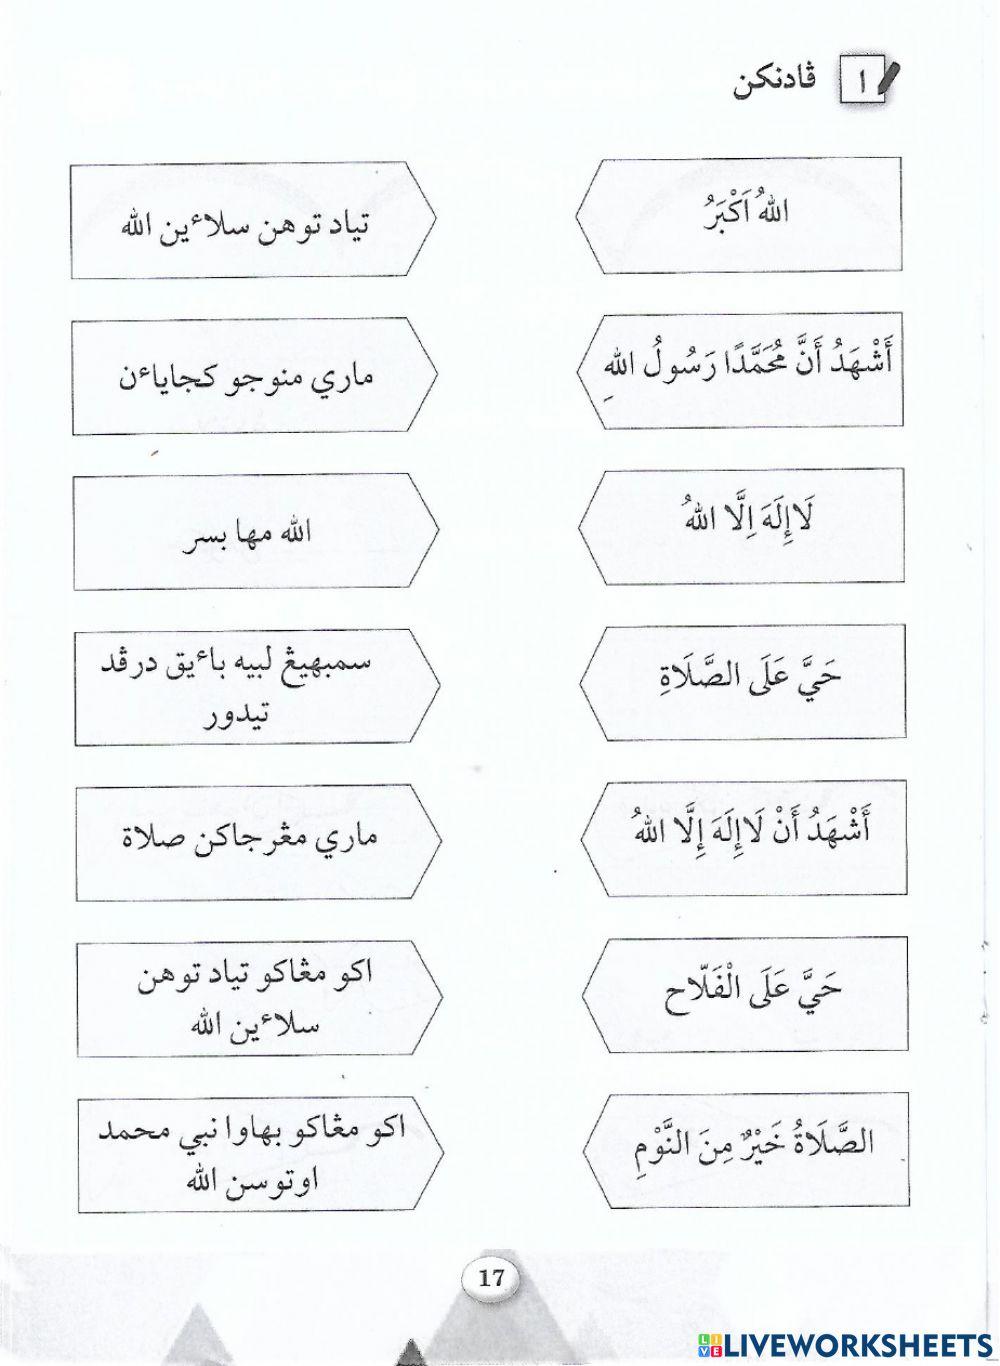 ا
ڤادنكن
اللهُ اَكْبَرُ
تياد توهن سلاءين الله
أَشْهَدُ أَنَّ مُحَمَّدًا رَسُولُ اللهِ
ماري منوجو كجاياءن
لَاإِلَهَ اِلَّا اللهُ
الله مها بسر
حَيَّ عَلَى الصَّلَاةِ
سمبهيڠ لبيه باءيق درڤد
تيدور
أَشْهَدُ أَنْ لَاإِلَهَ إِلَّا اللهُ
ماري مڠرجاكن صلاة
حَيَّ عَلَى الْفَلّاح
اكو مڠاكو تياد توهن
سلاءين الله
الصَّلَاةُ خَيْرٌ مِنَ النَّوْمِ
اكو مڠاكو بهاوا نبي محمد
اوتوسن الله
17
LIVE LIVEWORKSHEETS